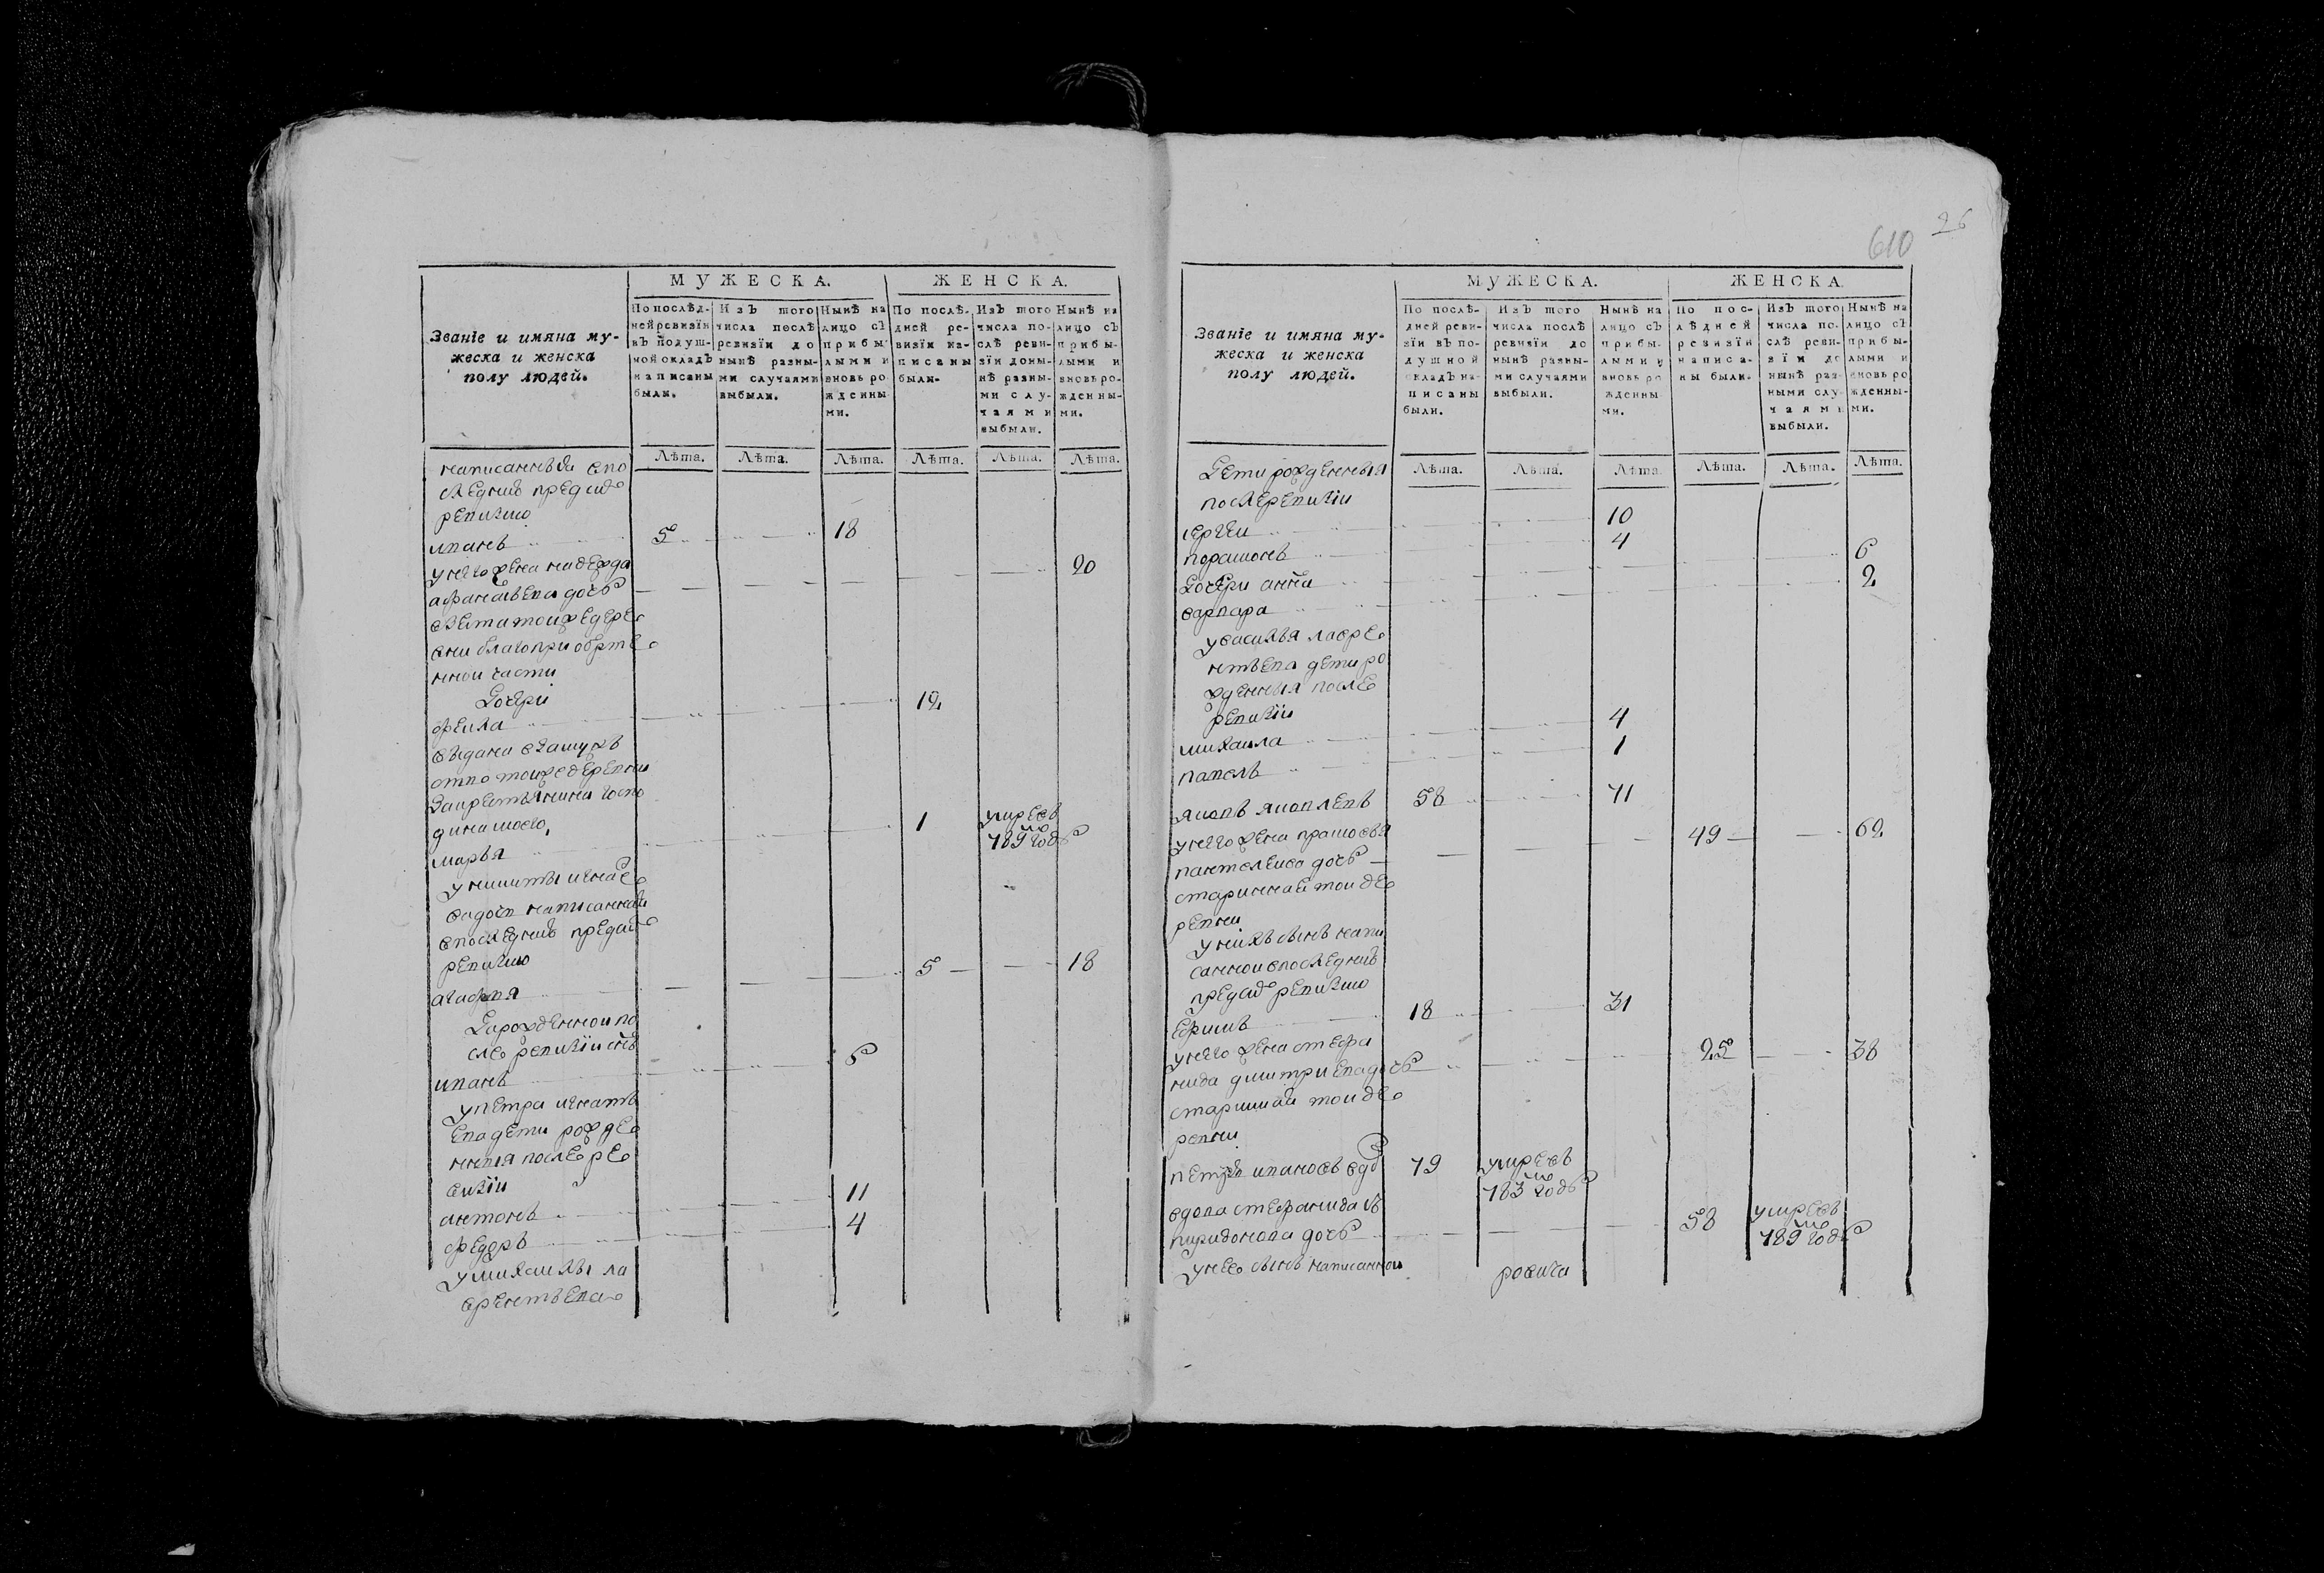 610
26
МУЖЕСКА.
ЖЕНСКА.
Званіе и имяна му-
жеска и женска
полу людей.
По послѣд-
ней ревизіи
въ подуш-
ной окладъ
написаны
были.
Изъ того
числа послѣ
ревизіи до
нынѣ разны-
ми случаями
выбыли.
Нынѣ на
лицо съ
прибы-
лыми и
вновь ро-
жденны-
ми.
По послѣ-
дней ре-
визіи на-
писаны
были.
Изъ того
числа по-
слѣ реви-
зіи доны-
нѣ разны-
ми слу-
чаями
выбыли.
Нынѣ на
лицо съ
прибы-
лыми и
вновь ро-
жденны-
ми.
Лѣта. Лѣта. Лѣта. Лѣта. Лѣта. Лѣта.
написанныя впо
следнию предсидѣ
ревизию
иванъ 5 18
унего жена надежда 20
афанасьева дочь
взята тоиже дере
вни благоприобрте
ннои части
Дочери
фекла 12
выдана взамужъ
втпо тоиже деревни
закрестьянина госпо
дина моего,
марья 1 умрѣ въ
789 годѣ
уникиты игнатье
ва дочь написанная
впоследнию предсид
ревизию
агафья 5 18
Да рожденнои по
сле ревизіи сынъ
иванъ 5
упетра игнатье
ева дети рожде
нныя после ре
визіи
антонъ 11
федоръ 4
умихаилы ла
врентьева
МУЖЕСКА.
ЖЕНСКА.
Званіе и имяна му-
жеска и женска
полу людей.
По послѣ-
дней реви-
зіи въ по-
душной
окладъ на-
писаны
были.
Изъ того
числа послѣ
ревизіи до
нынѣ разны-
ми случаями
выбыли.
Нынѣ на
лицо съ
прибы-
лыми и
вновь ро
жденны-
ми.
По пос-
лѣдней
ревизіи
написа-
ны были.
Изъ того
числа по-
слѣ реви-
зіи до
нынѣ раз-
ными слу-
чаями
выбыли.
Нынѣ на
лицо съ
прибы-
лыми и
вновь ро
жденны-
ми.
Лѣта. Лѣта. Лѣта. Лѣта. Лѣта. Лѣта.
Дети рожденныя
послѣ ревизіи
сергеи 10
харитонъ 4
Дочери анна 6
варвара 2
увасилья лавре
нтьева дети ро
жденныя после
ревизіи
михаила 4
павелъ 1
яковъ яковлевъ 58 71
унего жена прасковья 49 62
пантелеева дочь
стариннай тои де
ревни
унихъ сынъ напи
саннои впоследнию
предсид ревизию
ефимъ 18 31
унего жена стефа 25 38
нида димитриева дочь
стариннай тои де
ревни
петръ ивановъ вдо 79 умрѣ въ
783 годѣ
вдова стефанида с
пиридонова дочь 58 умрѣ въ
789 годѣ
унее сынъ написаннои
ровича